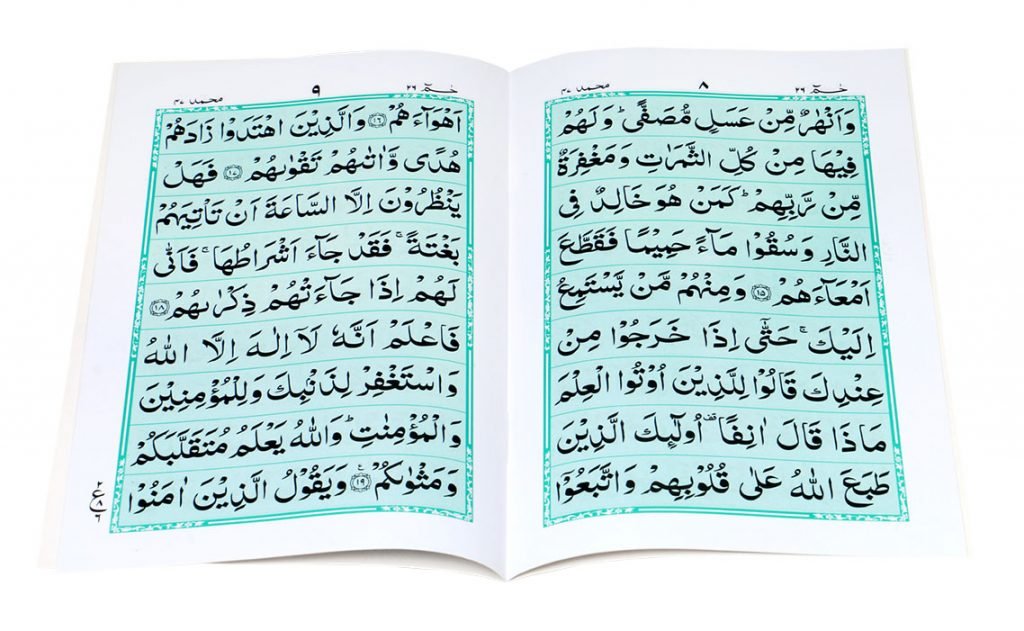 حٰمٓ ٢٦
٨
محمد ٤٧
وَاَنْهٰرٌ مِّنْ عَسَلٍ مُّصَفًّى ؕ وَلَهُمْ
فِيْهَا مِنْ كُلِّ الثَّمَرٰتِ وَمَغْفِرَةٌ
مِّنْ رَّبِّهِمْ ؕ كَمَنْ هُوَ خَالِدٌ فِى
النَّارِ وَسُقُوْا مَآءً حَمِيْمًا فَقَطَّعَ
اَمْعَآءَهُمْ ۝١٥ وَمِنْهُمْ مَّنْ يَّسْتَمِعُ
اِلَيْكَ ۚ حَتّٰٓى اِذَا خَرَجُوْا مِنْ
عِنْدِكَ قَالُوْا لِلَّذِيْنَ اُوْتُوا الْعِلْمَ
مَاذَا قَالَ اٰنِفًا ۟ اُولٰٓئِكَ الَّذِيْنَ
طَبَعَ اللّٰهُ عَلٰى قُلُوْبِهِمْ وَاتَّبَعُوْٓا
حٰمٓ ٢٦
٩
محمد ٤٧
اَهْوَآءَهُمْ ۝١٦ وَالَّذِيْنَ اهْتَدَوْا زَادَهُمْ
هُدًى وَّاٰتٰىهُمْ تَقْوٰىهُمْ ۝١٧ فَهَلْ
يَنْظُرُوْنَ اِلَّا السَّاعَةَ اَنْ تَاْتِيَهُمْ
بَغْتَةً ۚ فَقَدْ جَآءَ اَشْرَاطُهَا ۚ فَاَنّٰى
لَهُمْ اِذَا جَآءَتْهُمْ ذِكْرٰىهُمْ ۝١٨
فَاعْلَمْ اَنَّهٗ لَآ اِلٰهَ اِلَّا اللّٰهُ
وَاسْتَغْفِرْ لِذَنْۢبِكَ وَلِلْمُؤْمِنِيْنَ
وَالْمُؤْمِنٰتِ ؕ وَاللّٰهُ يَعْلَمُ مُتَقَلَّبَكُمْ
وَمَثْوٰىكُمْ ۝١٩ وَيَقُوْلُ الَّذِيْنَ اٰمَنُوْا
٢
ع
٨
٦